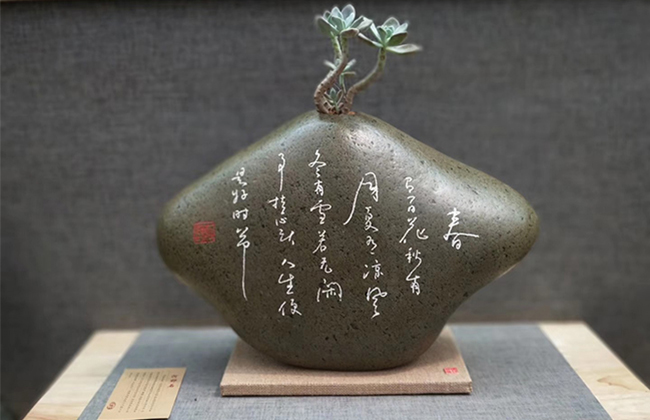 春
有百花秋有
月夏有凉风
冬有雪若无闲
事挂心头人生便
是好时节